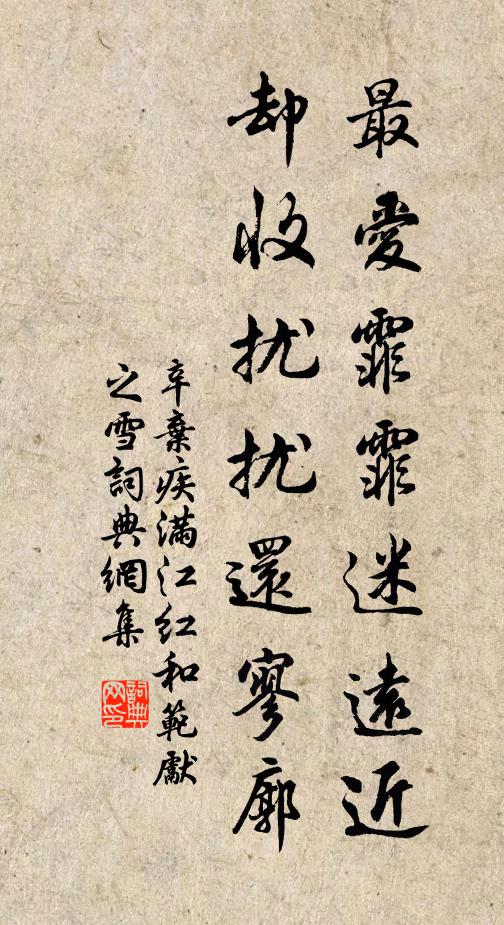 最愛霏霏迷遠近
却收扰扰還寥廓
辛棄疾满江红和範獻
之雪詞典網集
詞典
网印